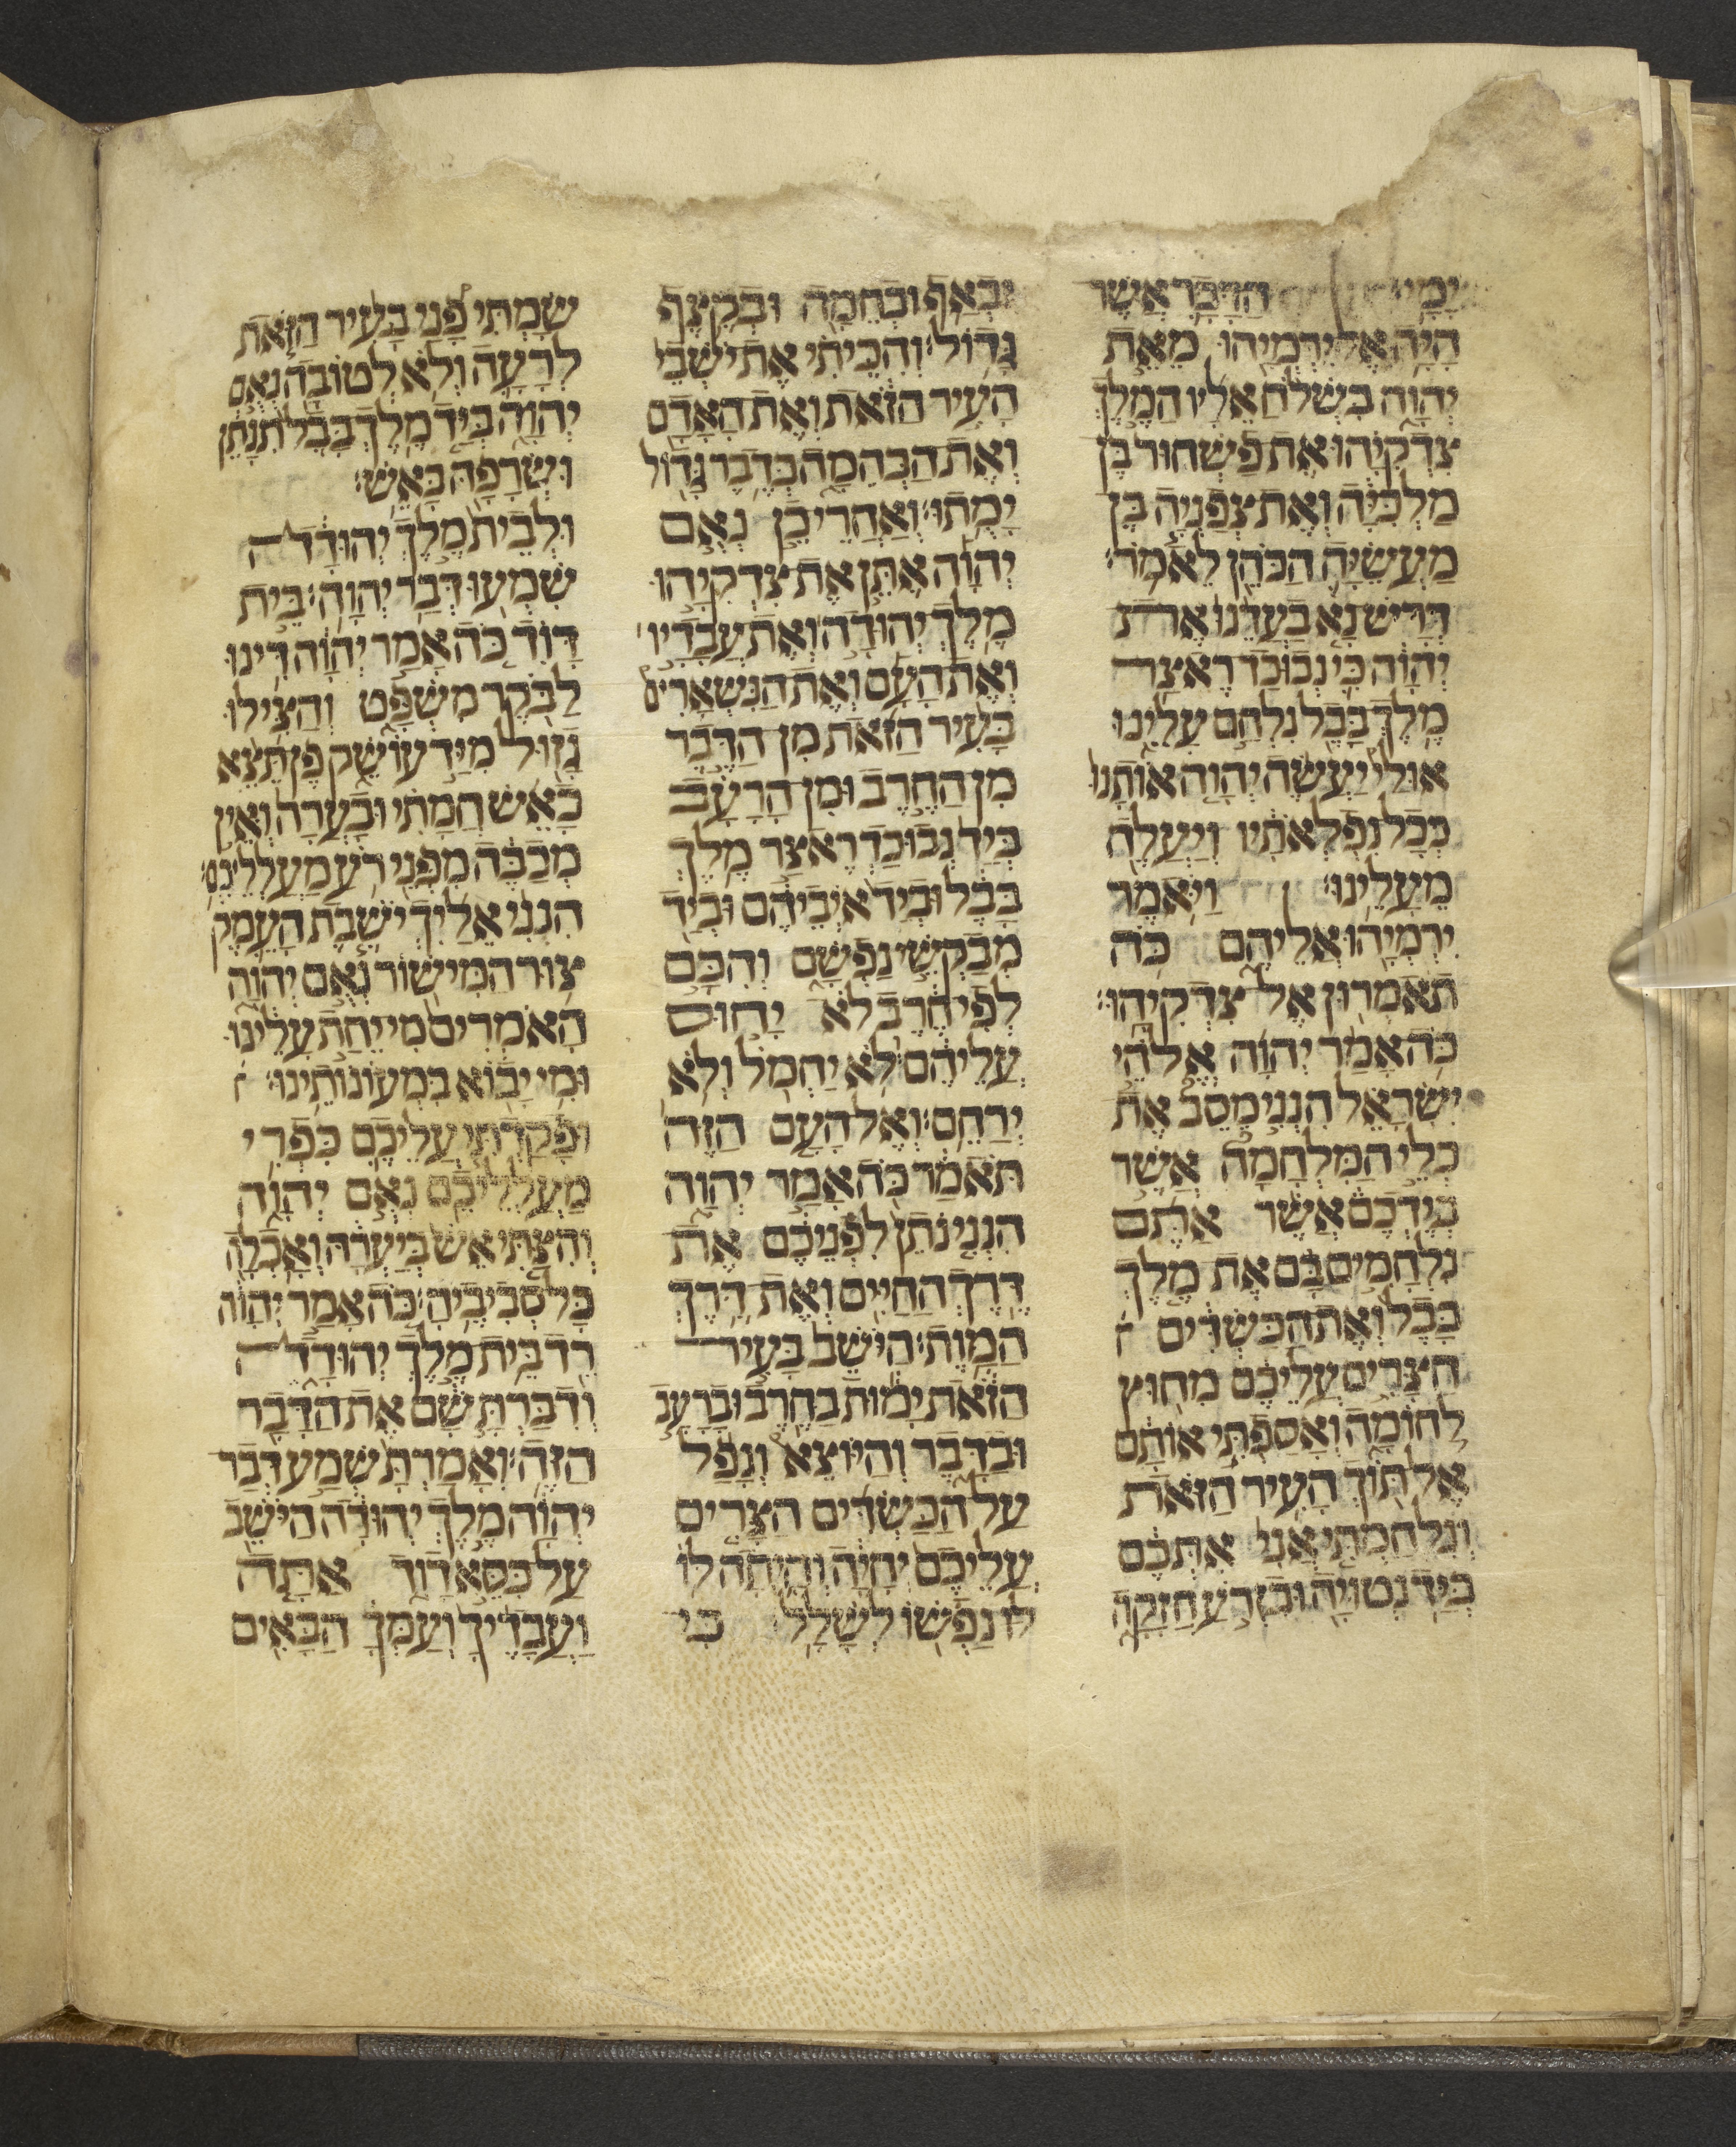 יָמָי הַדָּבָר אֲשֶׁר
הָיָה אֶל יִרְמְיָהוּ מֵאֵת
יְהוָה בִּשְׁלֹחַ אֵלָיו הַמֶּלֶךְ
צִדְקִיָּהוּ אֶת פַּשְׁחוּר בֶּן
מַלְכִּיָּה וְאֶת צְפַנְיָה בֶן
מַעֲשֵׂיָה הַכֹּהֵן לֵאמֹר׃
דְּרָשׁ נָא בַעֲדֵנוּ אֶת
יְהוָה כִּי נְבוּכַדְרֶאצַּר
מֶלֶךְ בָּבֶל נִלְחָם עָלֵינוּ
אוּלַי יַעֲשֶׂה יְהוָה אוֹתָנוּ
כְּכָל נִפְלְאֹתָיו וְיַעֲלֶה
מֵעָלֵינוּ׃ וַיֹּאמֶר
יִרְמְיָהוּ אֲלֵיהֶם כֹּה
תֹאמְרוּן אֶל צִדְקִיָּהוּ׃
כֹּה אָמַר יְהוָה אֱלֹהֵי
יִשְׂרָאֵל הִנְנִי מֵסֵב אֶת
כְּלֵי הַמִּלְחָמָה אֲשֶׁר
בְּיֶדְכֶם אֲשֶׁר אַתֶּם
נִלְחָמִים בָּם אֶת מֶלֶךְ
בָּבֶל וְאֶת הַכַּשְׂדִּים
הַצָּרִים עֲלֵיכֶם מִחוּץ
לַחוֹמָה וְאָסַפְתִּי אוֹתָם
אֶל תּוֹךְ הָעִיר הַזֹּאת
וְנִלְחַמְתִּי אֲנִי אִתְּכֶם
בְּיָד נְטוּיָה וּבִזְרֹעַ חֲזָקָה
וּבְאַף וּבְחֵמָה וּבְקֶצֶף
גָּדוֹל׃ וְהִכֵּיתִי אֶת יֹשְׁבֵי
הָעִיר הַזֹּאת וְאֶת הָאָדָם
וְאֶת הַבְּהֵמָה בְּדֶבֶר גָּדוֹל
יָמֻתוּ׃ וְאַחֲרֵי כֵן נְאֻם
יְהוָה אֶתֵּן אֶת צִדְקִיָּהוּ
מֶלֶךְ יְהוּדָה וְאֶת עֲבָדָיו
וְאֶת הָעָם וְאֶת הַנִּשְׁאָרִים
בָּעִיר הַזֹּאת מִן הַדֶּבֶר
מִן הַחֶרֶב וּמִן הָרָעָב
בְּיַד נְבוּכַדְרֶאצַּר מֶלֶךְ
בָּבֶל וּבְיַד אֹיְבֵיהֶם וּבְיַד
מְבַקְשֵׁי נַפְשָׁם וְהִכָּם
לְפִי חֶרֶב לֹא יָחוּס
עֲלֵיהֶם וְלֹא יַחְמֹל וְלֹא
יְרַחֵם׃ וְאֶל הָעָם הַזֶּה
תֹּאמַר כֹּה אָמַר יְהוָה
הִנְנִי נֹתֵן לִפְנֵיכֶם אֶת
דֶּרֶךְ הַחַיִּים וְאֶת דֶּרֶךְ
הַמָּוֶת׃ הַיֹּשֵׁב בָּעִיר
הַזֹּאת יָמוּת בַּחֶרֶב וּבָרָעָב
וּבַדָּבֶר וְהַיּוֹצֵא וְנָפַל
עַל הַכַּשְׂדִּים הַצָּרִים
עֲלֵיכֶם יִחְיֶה וְהָיְתָה לּוֹ
לוֹ נַפְשׁוֹ לְשָׁלָל׃ כִּי
שַׂמְתִּי פָנַי בָּעִיר הַזֹּאת
לְרָעָה וְלֹא לְטוֹבָה נְאֻם
יְהוָה בְּיַד מֶלֶךְ בָּבֶל תִּנָּתֵן
וּשְׂרָפָהּ בָּאֵשׁ׃
וּלְבֵית מֶלֶךְ יְהוּדָה
שִׁמְעוּ דְּבַר יְהוָה׃ בֵּית
דָּוִד כֹּה אָמַר יְהוָה דִּינוּ
לַבֹּקֶר מִשְׁפָּט וְהַצִּילוּ
גָזוּל מִיַּד עוֹשֵׁק פֶּן תֵּצֵא
כָאֵשׁ חֲמָתִי וּבָעֲרָה וְאֵין
מְכַבֶּה מִפְּנֵי רֹעַ מַעַלְלֵיכֶם׃
הִנְנִי אֵלַיִךְ יֹשֶׁבֶת הָעֵמֶק
צוּר הַמִּישׁוֹר נְאֻם יְהוָה
הָאֹמְרִים מִי יֵחַת עָלֵינוּ
וּמִי יָבוֹא בִּמְעוֹנוֹתֵינוּ׃
וּפָקַדְתִּי עֲלֵיכֶם כִּפְרִי
מַעַלְלֵיכֶם נְאֻם יְהוָה
וְהִצַּתִּי אֵשׁ בְּיַעְרָהּ וְאָכְלָה
כָּל סְבִיבֶיהָ׃ כֹּה אָמַר יְהוָה
רֵד בֵּית מֶלֶךְ יְהוּדָה
וְדִבַּרְתָּ שָׁם אֶת הַדָּבָר
הַזֶּה׃ וְאָמַרְתָּ שְׁמַע דְּבַר
יְהוָה מֶלֶךְ יְהוּדָה הַיֹּשֵׁב
עַל כִּסֵּא דָוִד אַתָּה
וַעֲבָדֶיךָ וְעַמְּךָ הַבָּאִים